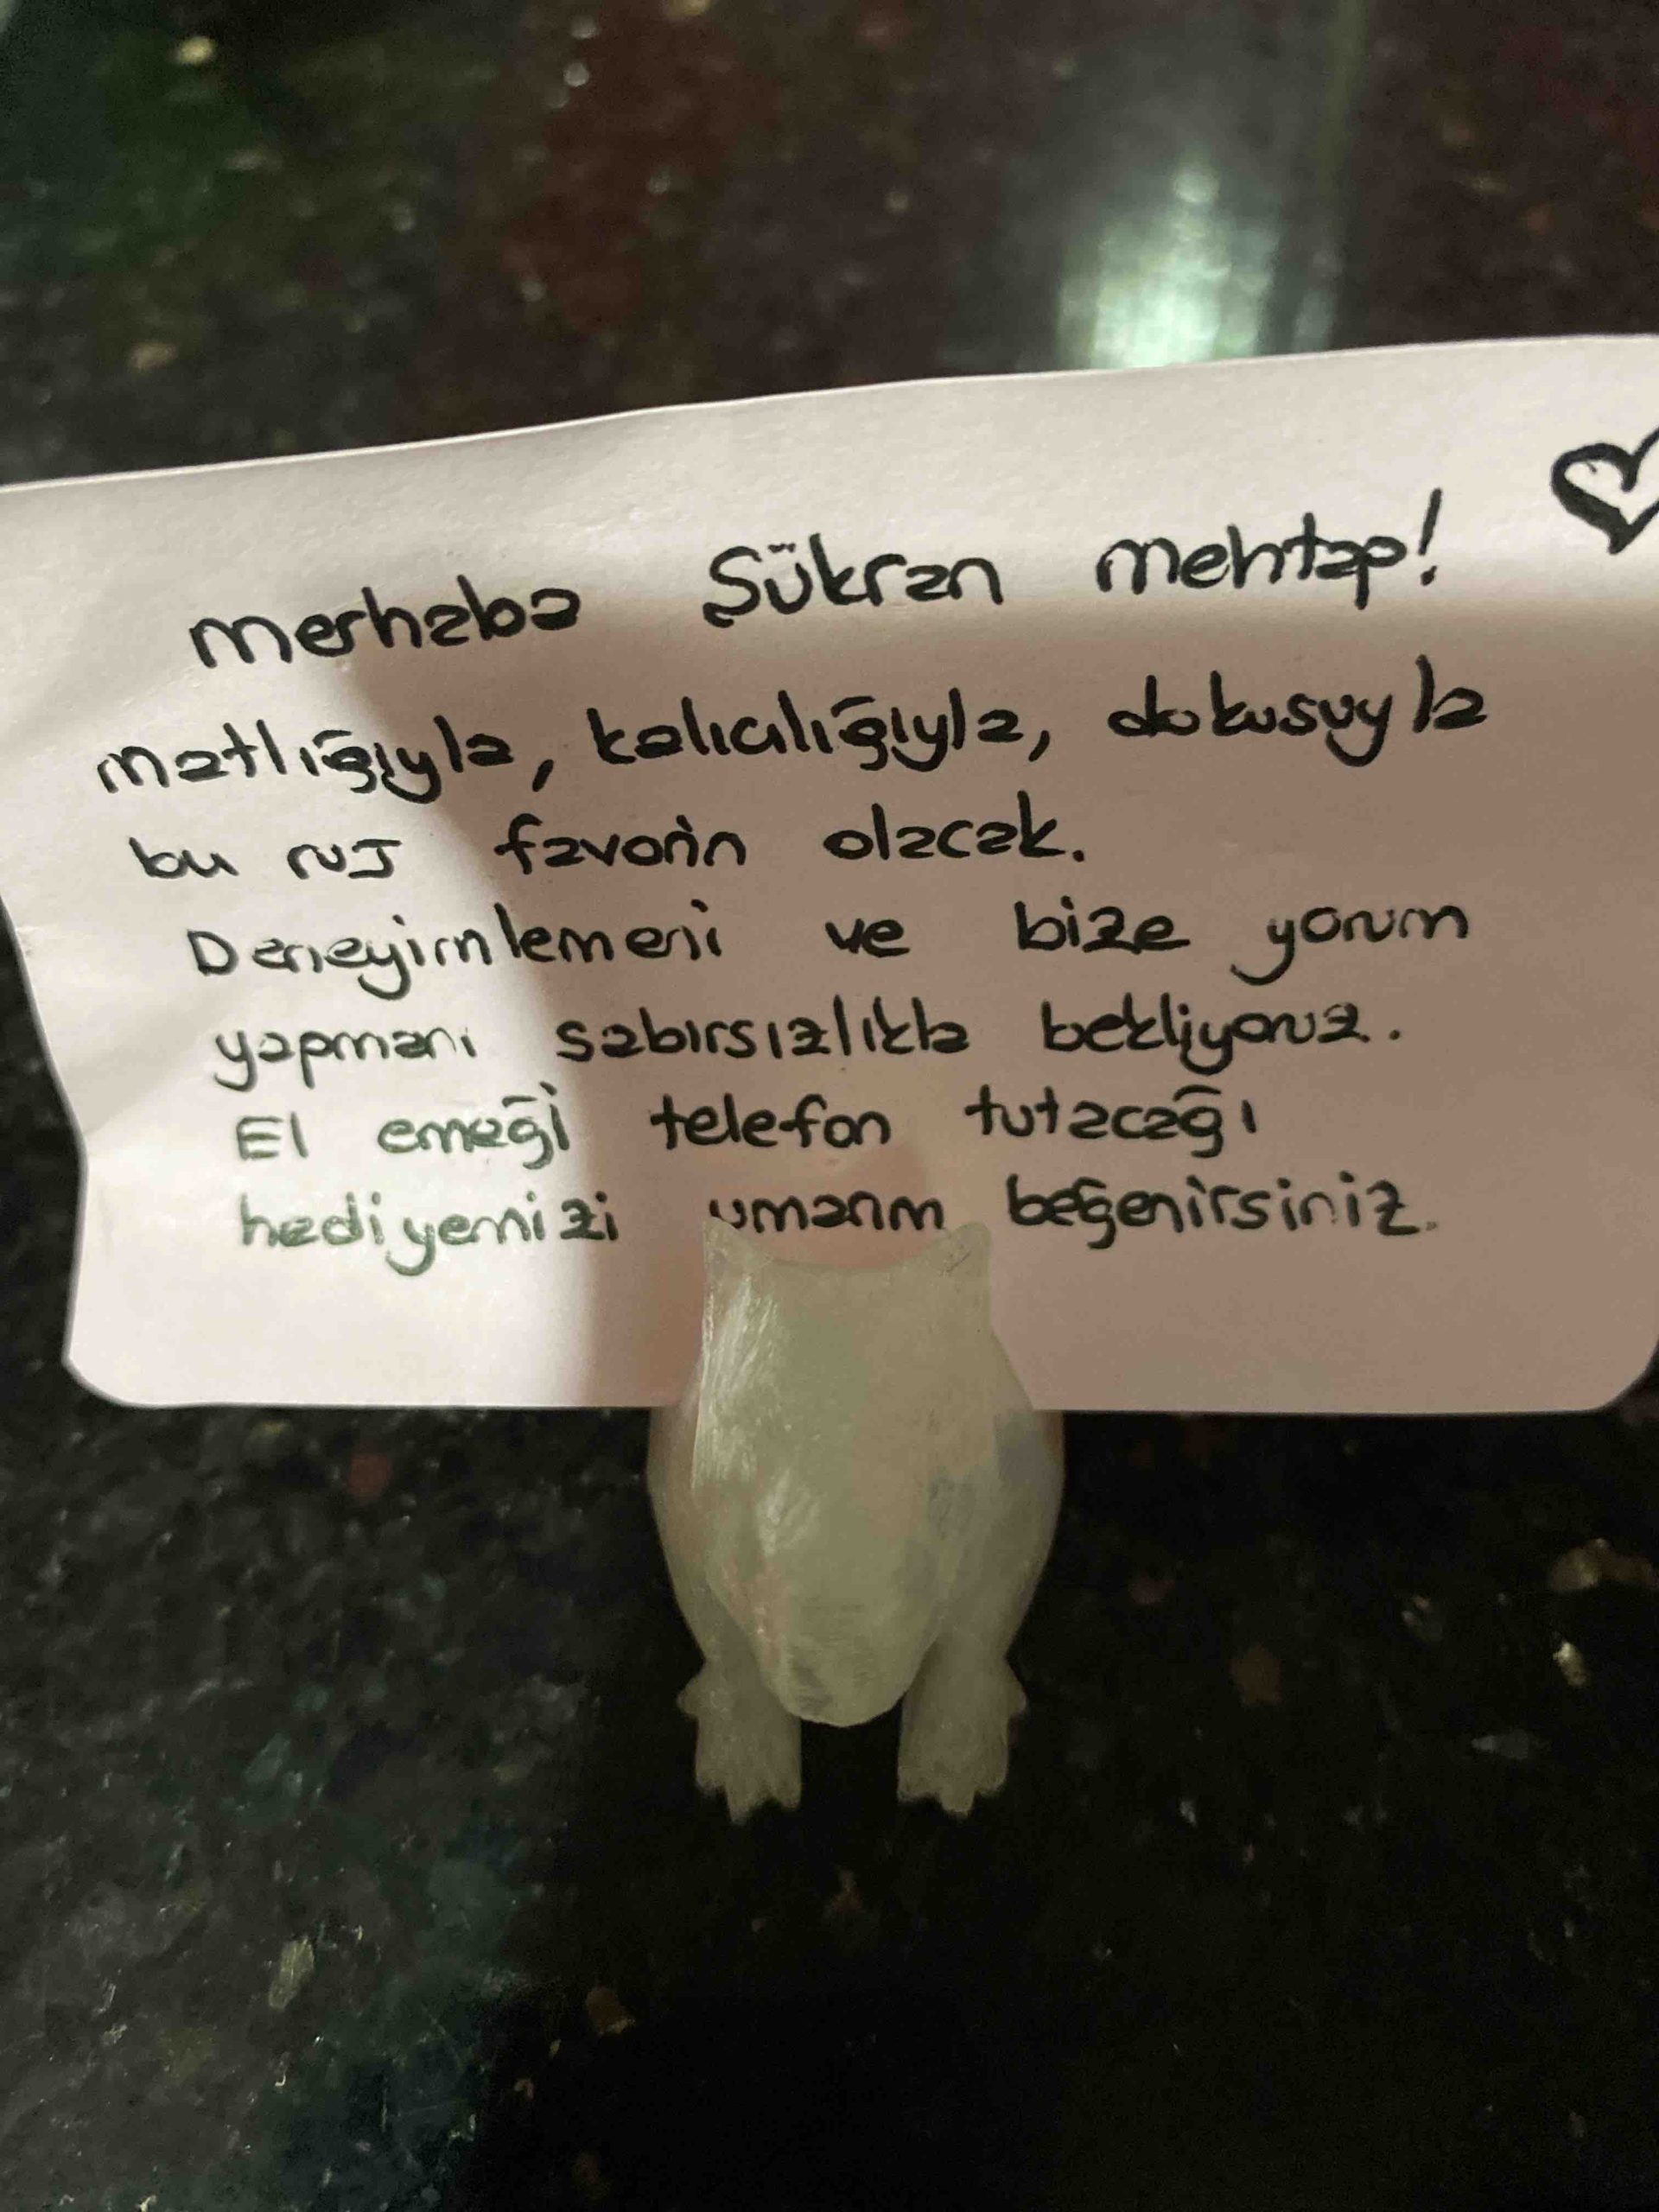 Merhaba Şükran Mehtap!
Matlığıyla, kalıcılığıyla, dokusuyla
bu ruj favorin olacak.
Deneyimlemeni ve bize yorum
yapmanı sabırsızlıkla bekliyoruz.
El emeği telefon tutacağı
hediyemizi umarım beğenirsiniz.